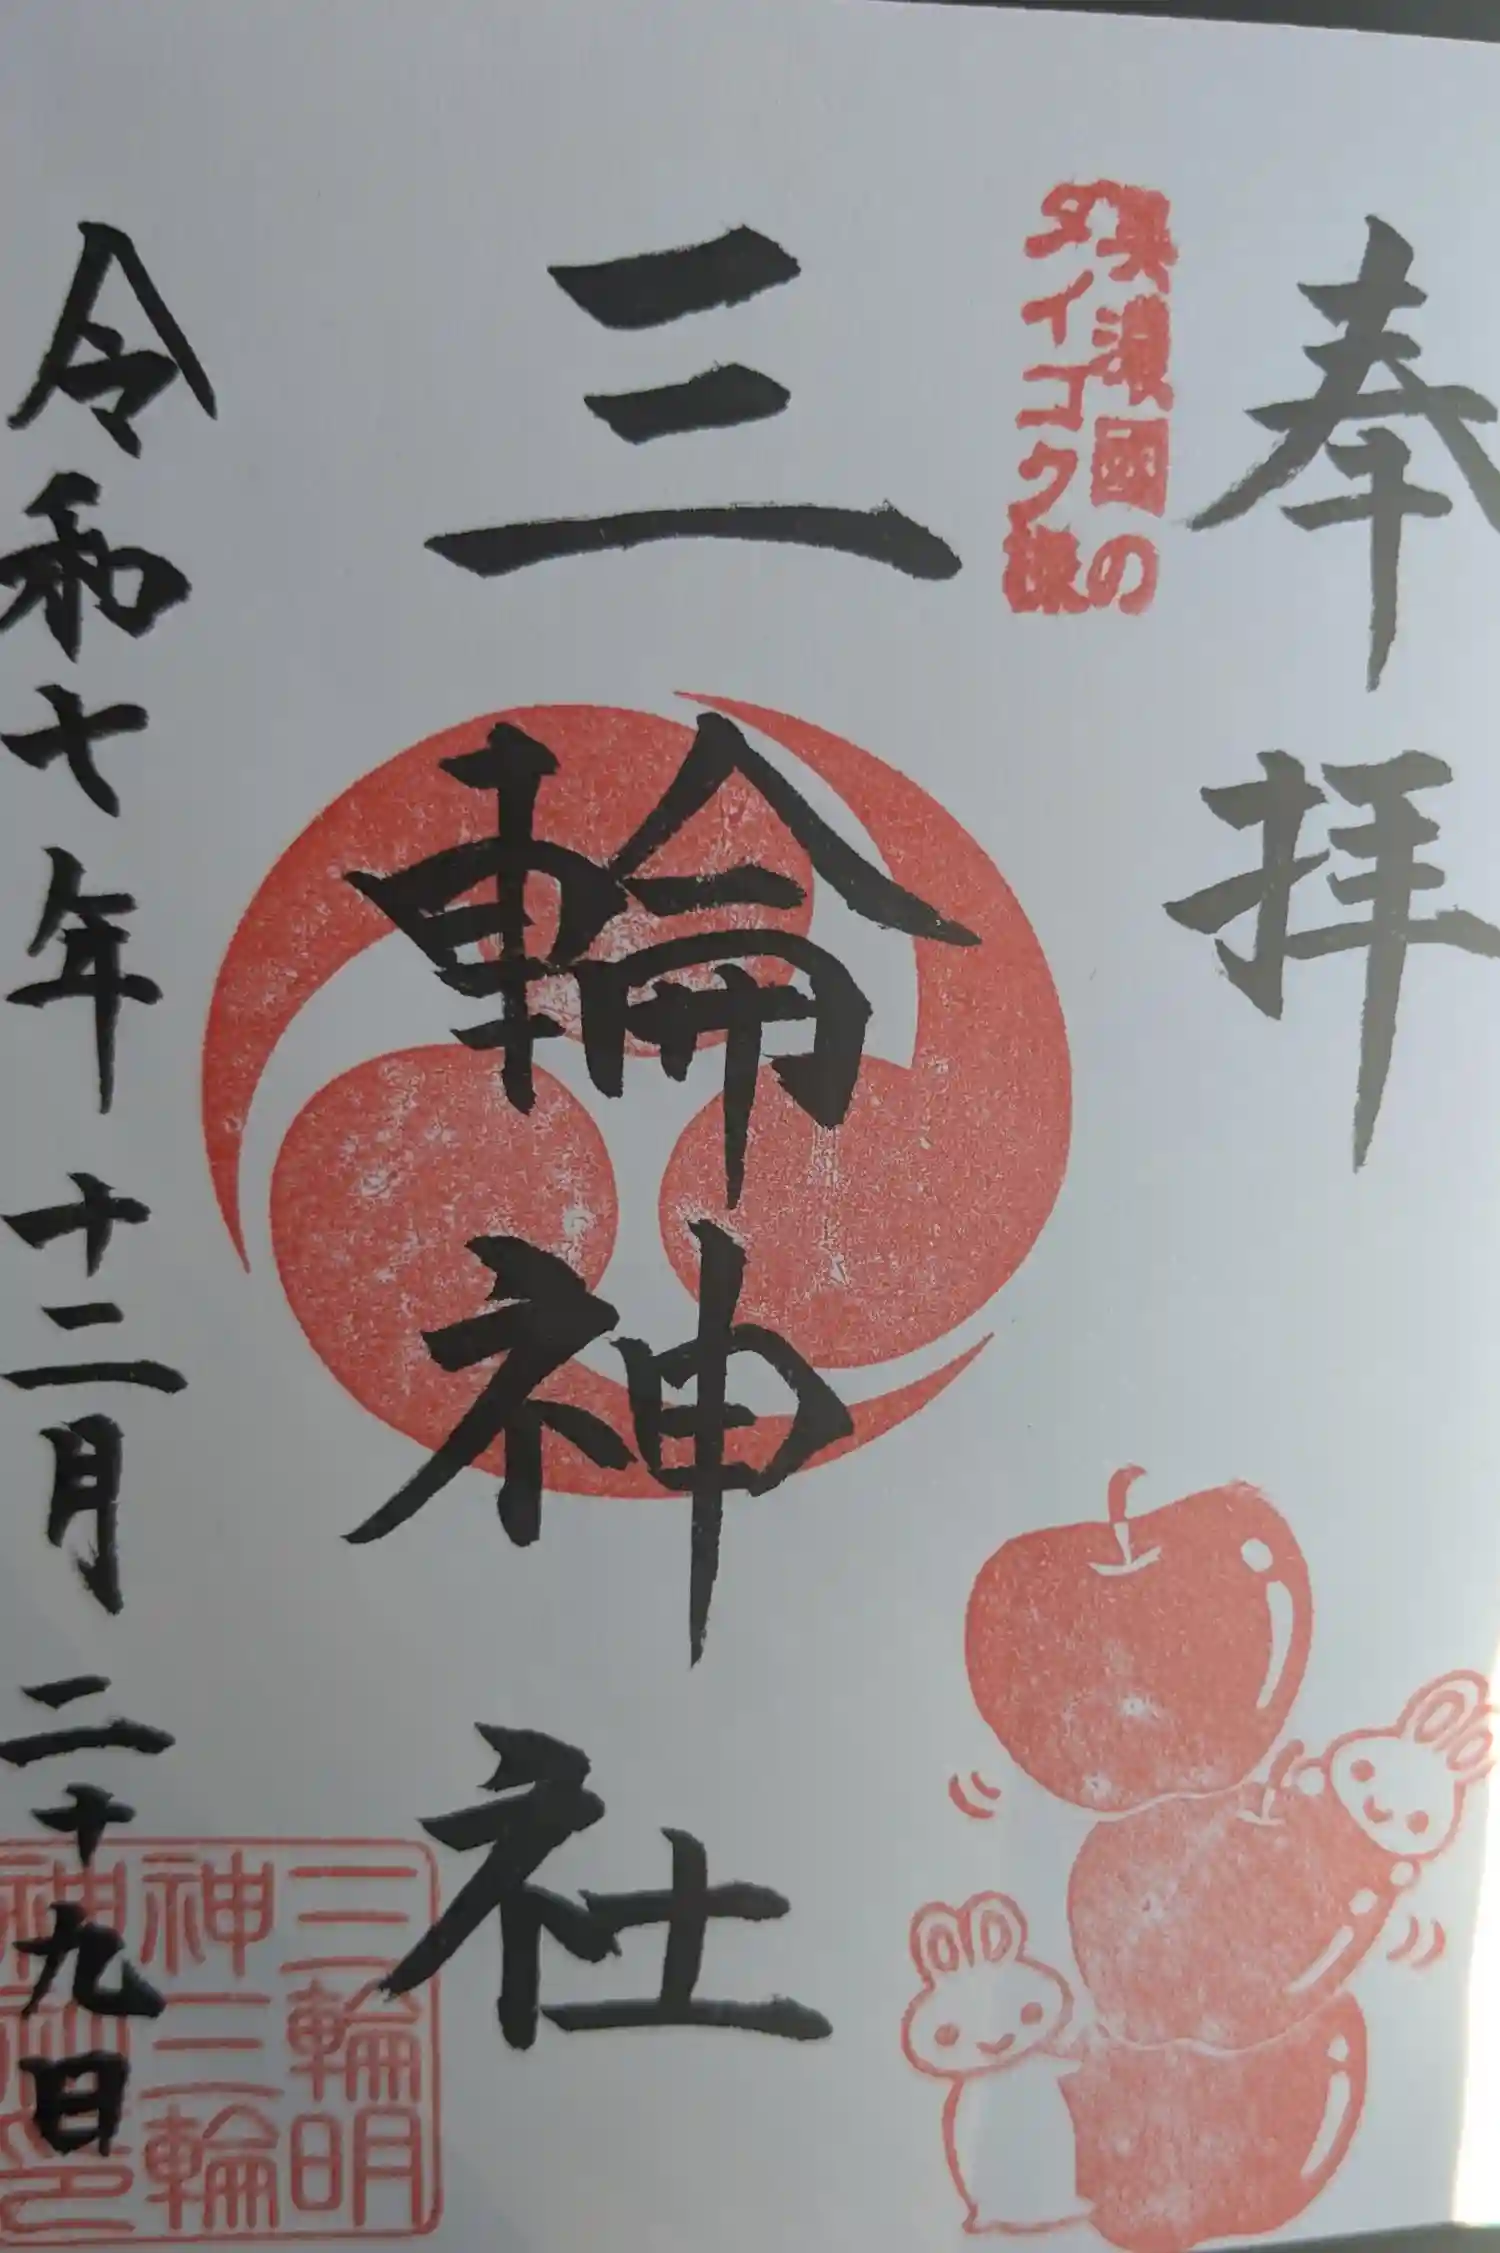 奉拝
美濃國の
ダイコク様
三輪神社
令和七年十二月二十九日
三輪明
神三輪
神社印